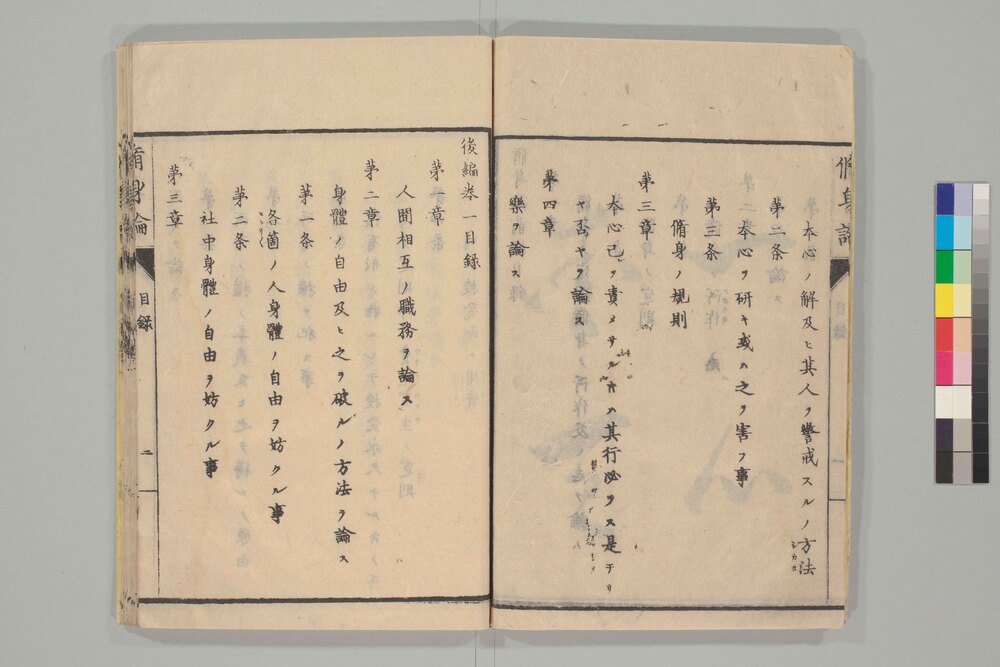 本心ノ解及ヒ其人ヲ警戒スルノ方法
シカタ
第二条
本心ヲ研キ或ハ之ヲ害フ事
第三条
脩身ノ規則
第三章
本心己ヲ責メサル片ハ其行必ラス是ナリ
ヤ否ヤヲ論ス
第四章
樂ヲ論ス
後編巻一目録
第一章
人間相互ノ職務ヲ論ス
第二章
身體ノ自由及ヒ之ヲ破ルノ方法ヲ論ス
第一条
各箇ノ人身體ノ自由ヲ妨クル事
第二条
社中身體ノ自由ヲ妨クル事
第三章
脩身論
目録
二